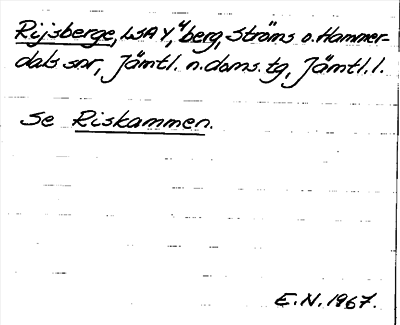 Rijsberge, LSA Y, "berg, Ströms o. Hammer-
dals snr, Jämtl. n. doms. tg, Jämtl. l.
Se Riskammen.
E.N. 1967.